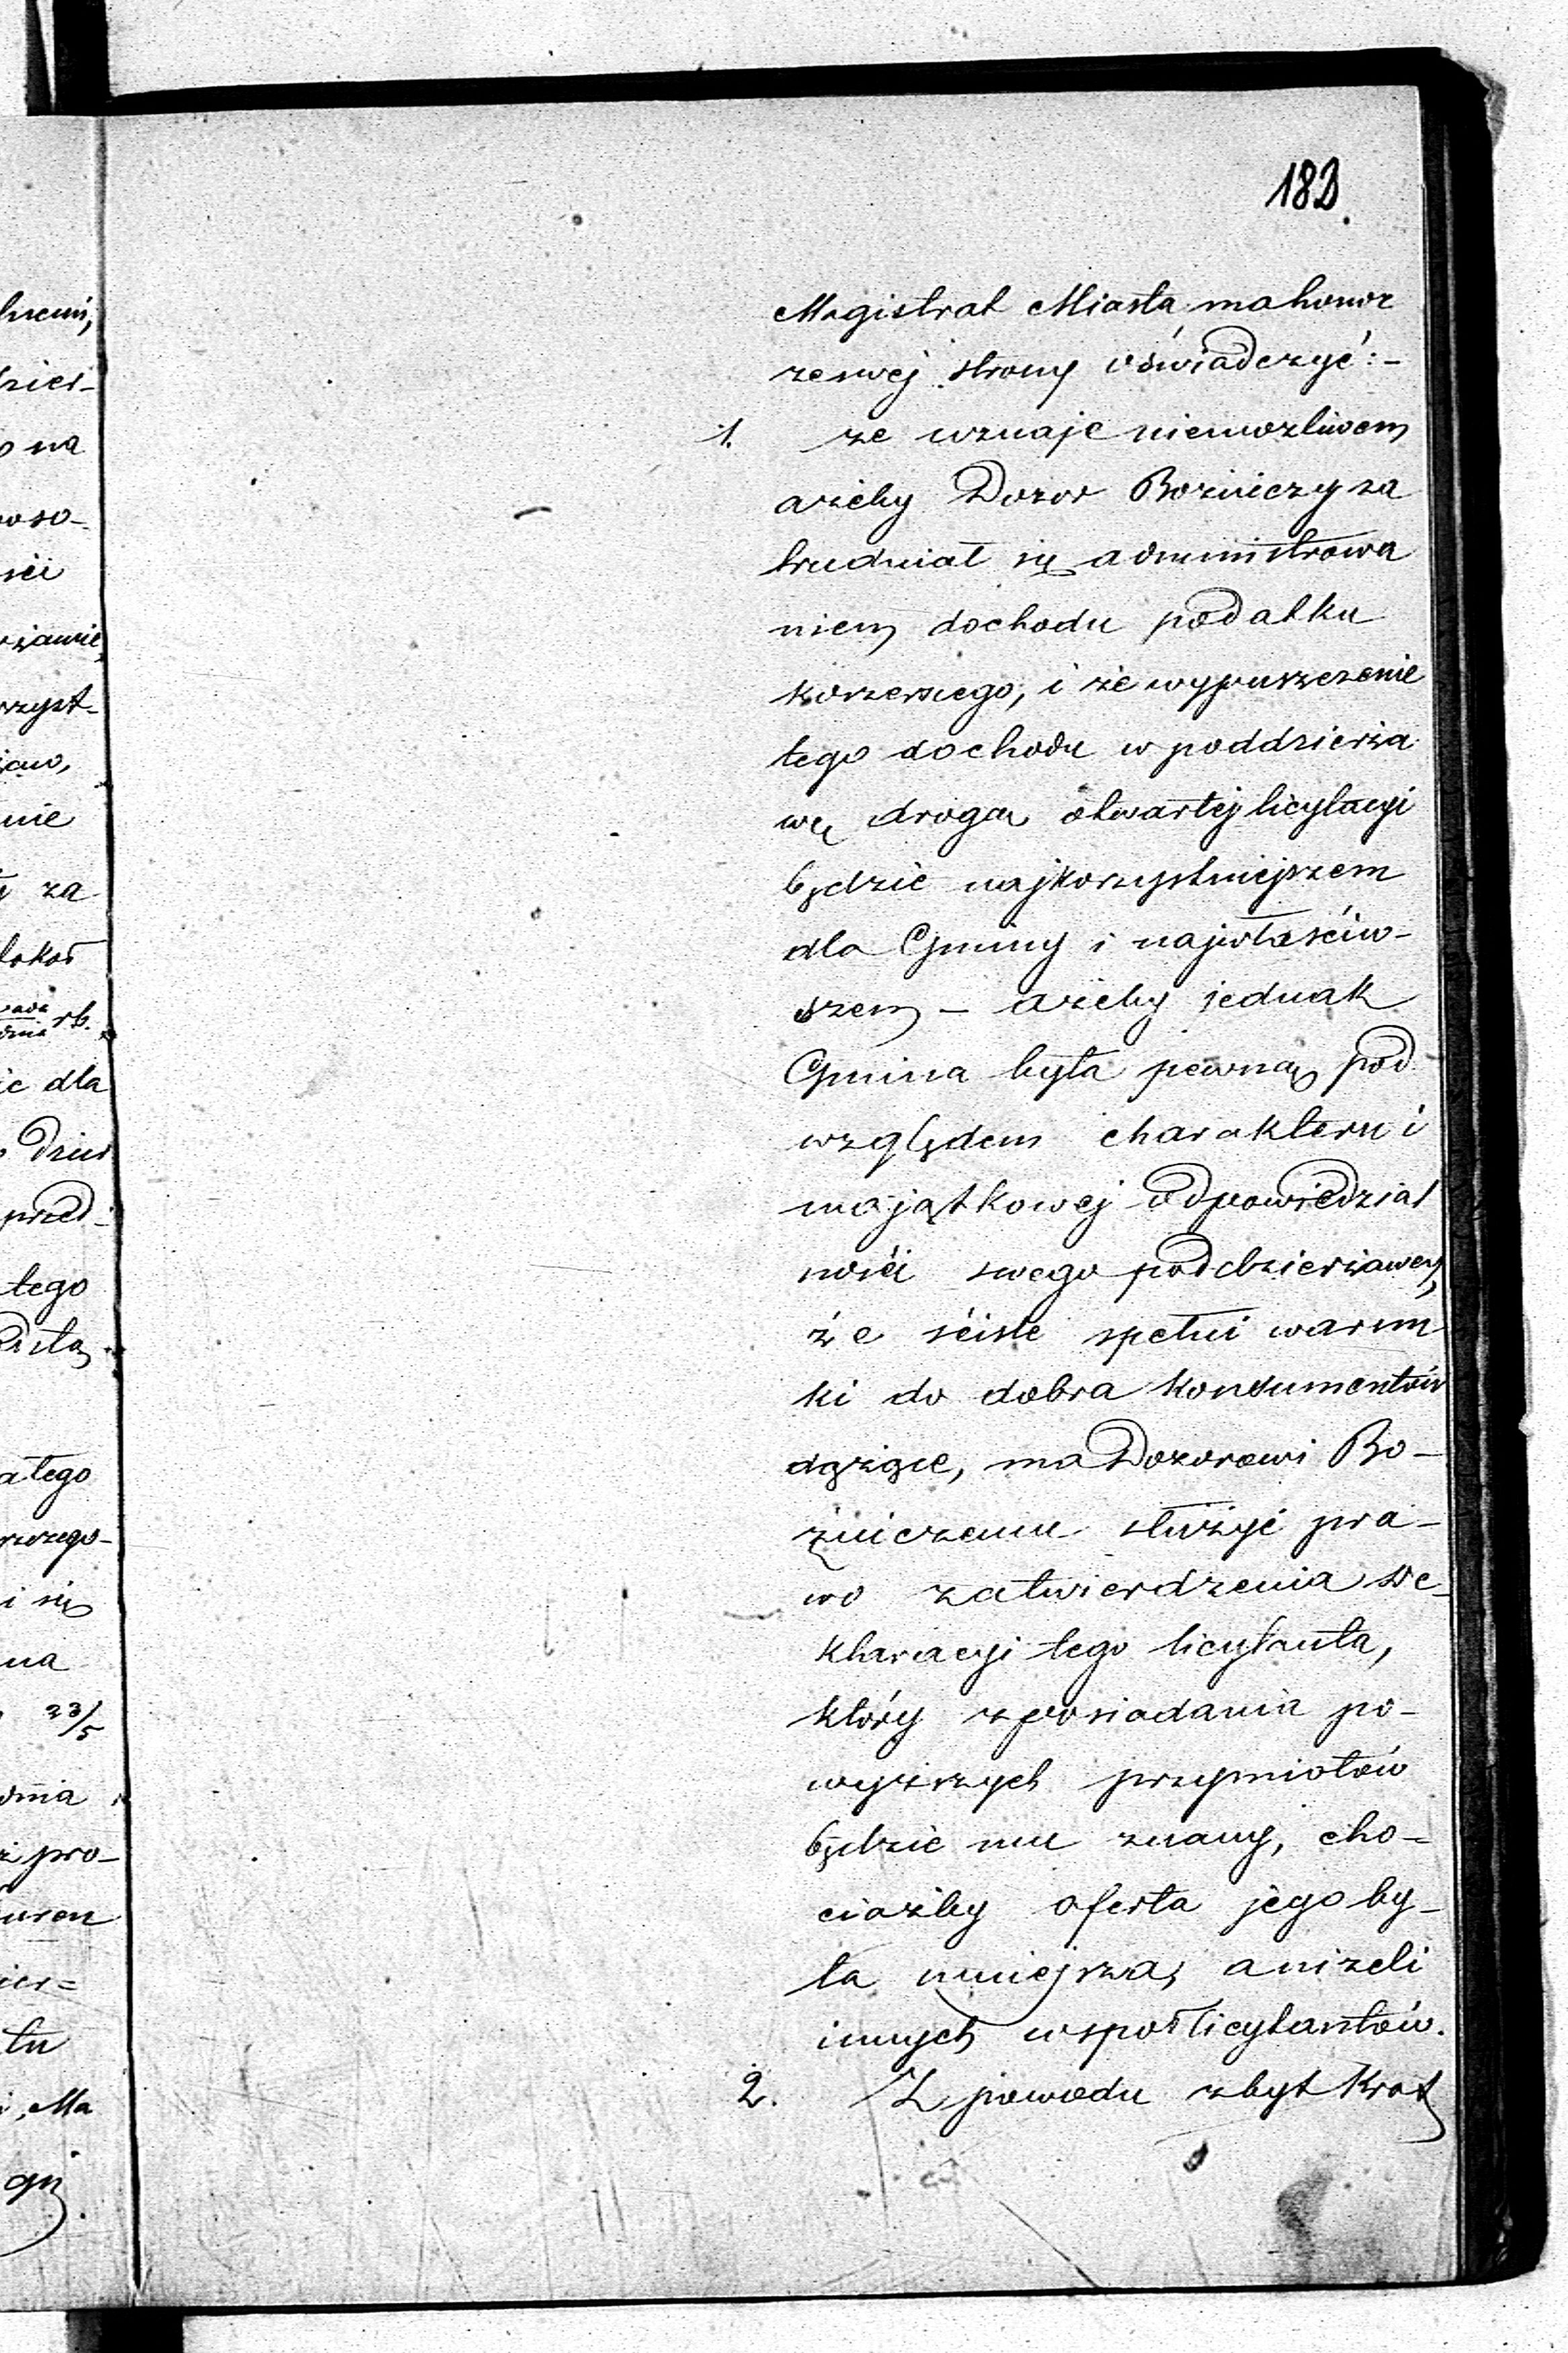 183.
Magistrat Miasta ma honor
ze swej strony oświadczyć:-
1. że uznaje niemożliwem
ażeby Dozor Bożniczy za
trudniał się administrowa
niem dochodu podatku
koszernego, i że wypuszczenie
tego dochodu w poddzierża
wę drogą otwartej licytacyi
będzie najkorzystniejszem
dla Gminy i najwłaściw-
szem – ażeby jednak
Gmina była pewną pod
względem charakteru i
majątkowej odpowiedzial
ności swego poddzierżawcy,
że ściśle spełni warun
ki do dobra konsumentów
dążące, ma Dozorowi Bo-
żniczemu służyć pra-
wo zatwierdzenia de-
klaracyi tego licytanta,
który z posiadania po-
wyższych przymiotów
będzie mu znany, cho-
ciażby oferta jego by-
ła mniejszą, aniżeli
innych współlicytantów.
2. Z powodu zbyt krót